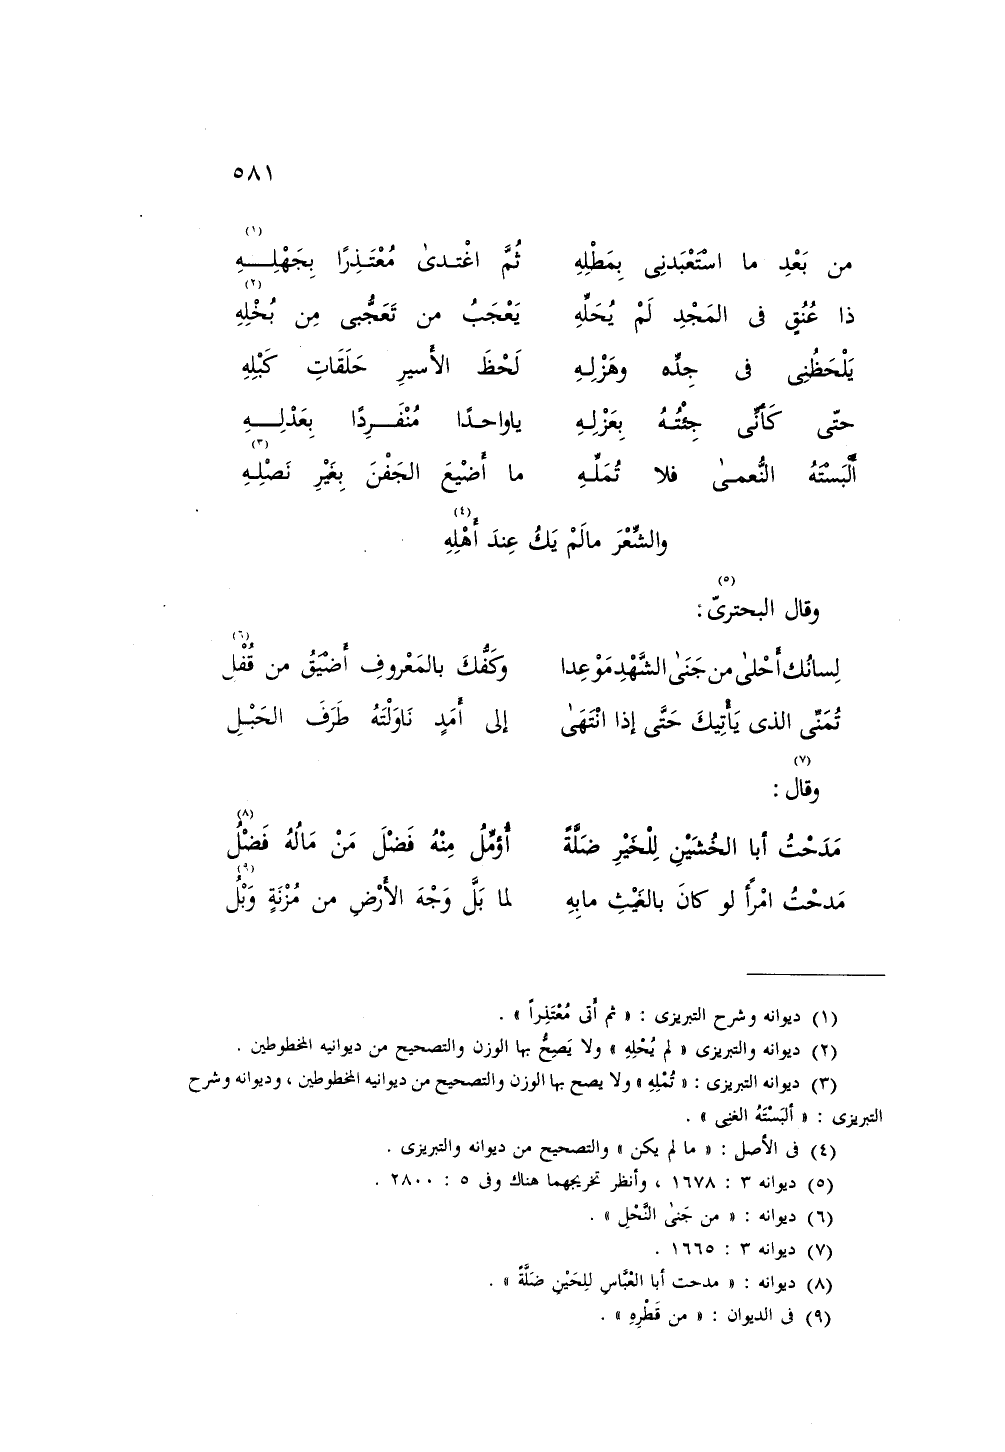 ٥٨١
من بَعْدِ ما اسْتَعْبَدنِى بِمَطْلِهِ ثُمَّ اغْتدىٰ مُعْتَذِرًا بِجَهْلِهِ (١)
ذا عُنُقٍ فى المَجْدِ لَمْ يُحَلِّهِ يَعْجَبُ من تَعَجُّبى مِن بُخْلِهِ (٢)
يَلْحَظُنِى فى جِدِّه وهَزْلِهِ لَحْظَ الأَسيرِ حَلَقَاتِ كَبْلِهِ
حتّى كَأَنّى جِئْتُهُ بِعَزْلِهِ ياواحدًا مُنْفَرِدًا بِعَذْلِهِ
أَلْبَسْتَهُ النُّعمىٰ فلا تُمَلِّهِ ما أَضْيَعَ الجَفْنَ بِغَيْرِ نَصْلِهِ (٣)
والشِّعْرَ مالَمْ يَكُ عِندَ أَهْلِهِ (٤)
وقال البحترىّ (٥) :
لِسانُك أَحْلىٰ من جَنَىٰ الشَّهْدِ مَوْعِدا وكَفُّكَ بالمَعْروفِ أَضْيَقُ من قُفْلِ (٦)
تُمَنِّى الذى يَأْتِيكَ حَتَّى إذا انْتَهَىٰ إلى أَمَدٍ نَاوَلْتَهُ طَرَفَ الحَبْلِ
وقال (٧) :
مَدَحْتُ أبا الخُشَيْنِ لِلْخَيْرِ ضَلَّةً أُؤمِّلُ مِنْهُ فَضْلَ مَنْ مَالُهُ فَضْلُ (٨)
مَدحْتُ امْرأً لو كانَ بالغَيْثِ مابِهِ لما بَلَّ وَجْهَ الأَرْضِ من مُزْنَةٍ وَبْلُ (٩)
(١) ديوانه وشرح التبريزى : « ثم أَتى مُعْتَذِراً » .
(٢) ديوانه والتبريزى « لم يُحْلِهِ » ولا يَصِحُّ بها الوزن والتصحيح من ديوانيه المخطوطين .
(٣) ديوانه التبريزى : « تُمْلِهِ » ولا يصح بها الوزن والتصحيح من ديوانيه المخطوطين ، وديوانه وشرح
التبريزى : « ألبَسْتَهُ الغنِى » .
(٤) فى الأصل : « ما لم يكن » والتصحيح من ديوانه والتبريزى .
(٥) ديوانه ٣ : ١٦٧٨ ، وأنظر تخريجهما هناك وفى ٥ : ٢٨٠٠ .
(٦) ديوانه : « من جَنىٰ النَّحْلِ » .
(٧) ديوانه ٣ : ١٦٦٥ .
(٨) ديوانه : « مدحت أبا العَبَّاسِ لِلحَيْنِ ضَلَّةً » .
(٩) فى الديوان : « من قَطْرِهِ » .